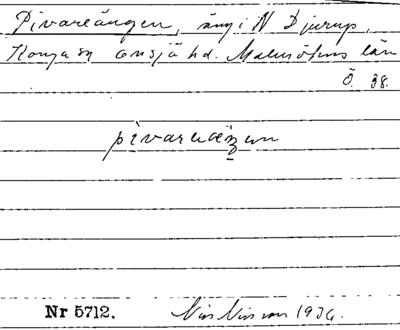 Pivareängen, äng i N Djurup,
Konga sn Onsjö hd. Malmöhus län
Ö. 38.
Nr 5712. Nils Nilsson 1936.